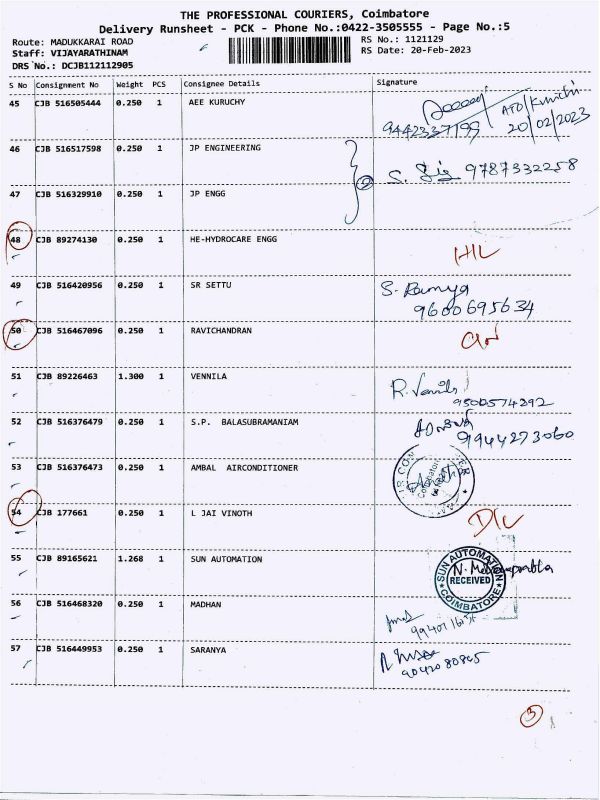 THE PROFESSIONAL COURIERS, Coimbatore
Delivery Runsheet - PCK - Phone No.:0422-3505555 - Page No.:5
Route: MADUKKARAI ROAD
RS No.: 1121129
Staff: VIJAYARATHINAM
RS Date: 20-Feb-2023
DRS No.: DCJB112112905
S No Consignment No Weight PCS Consignee Details Signature
45 CJB 516505444 0.250 1 AEE KURUCHY
9442337199 20/02/2023
46 CJB 516517598 0.250 1 JP ENGINEERING
9787332258
47 CJB 516329910 0.250 1 JP ENGG
48 CJB 89274130 0.250 1 HE-HYDROCARE ENGG
49 CJB 516420956 0.250 1 SR SETTU S. Ramya
9600695634
50 CJB 516467096 0.250 1 RAVICHANDRAN
51 CJB 89226463 1.300 1 VENNILA R. Vennila
9500574292
52 CJB 516376479 0.250 1 S.P. BALASUBRAMANIAM
9944273060
53 CJB 516376473 0.250 1 AMBAL AIRCONDITIONER
54 CJB 177661 0.250 1 L JAI VINOTH D/L
55 CJB 89165621 1.268 1 SUN AUTOMATION
SUN AUTOMATION
RECEIVED
COIMBATORE
56 CJB 516468320 0.250 1 MADHAN
57 CJB 516449953 0.250 1 SARANYA
9042080845
3